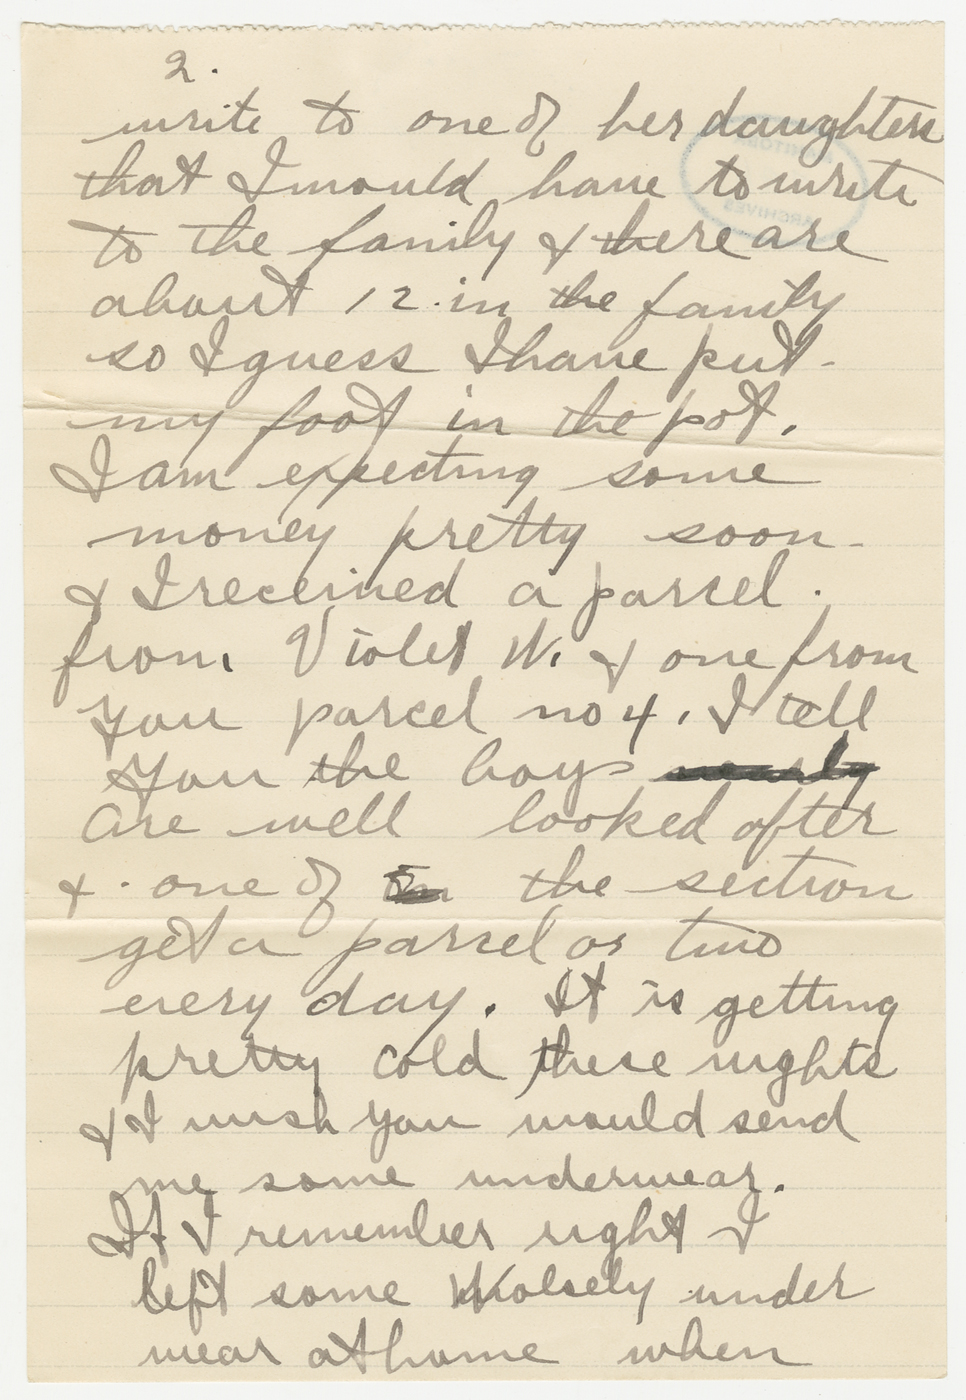 2.
write to one of her daughters
that I would have to write
to the family & there are
about 12 in the family
so I guess I have put
my foot in the pot.
I am expecting some
money pretty soon
& I received a parcel.
from Violet W. & one from
you parcel no 4. I tell
you the boys nearly
are well looked after
& one of the section
get a parcel or two
every day. It is getting
pretty cold these nights
& I wish you would send
me some underwear.
If I remember right I
left some Wolsely under
wear at home when